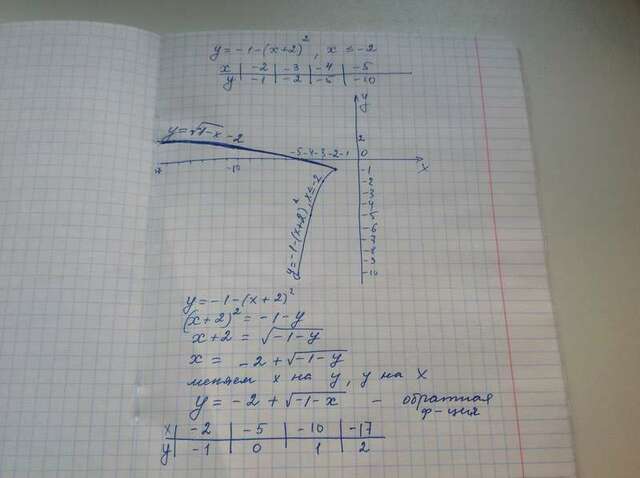 y = -1-(x+2)², x ≤ -2
x | -2 | -3 | -4 | -5
y | -1 | -2 | -5 | -10
y
y = √-1-x -2
2
-5 -4 -3 -2 -1 0
-10
x
-1
-2
-3
-4
-5
-6
-7
-8
-9
-10
y = -1-(x+2)², x ≤ -2
y = -1-(x+2)²
(x+2)² = -1-y
x+2 = √-1-y
x = -2+√-1-y
меняем x на y, y на x
y = -2+√-1-x - обратная
ф-ция
x | -2 | -5 | -10 | -17
y | -1 | 0 | 1 | 2